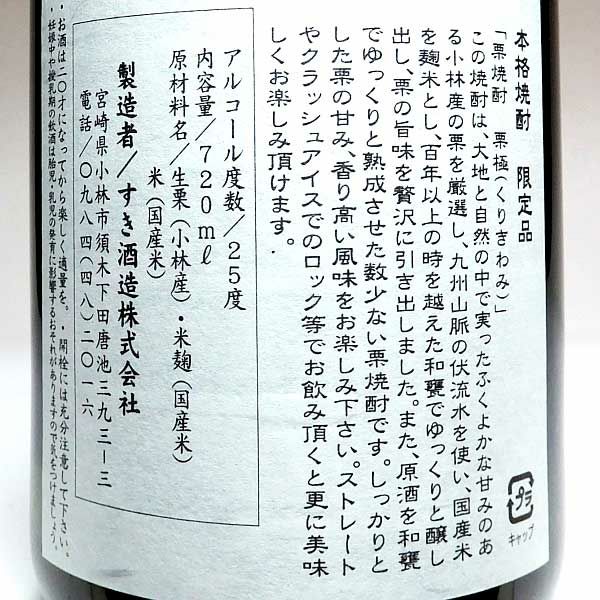 本格焼酎 限定品
「栗焼酎 栗極(くりきわみ)」
この焼酎は、大地と自然の中で実ったふくよかな甘みのあ
る小林産の栗を厳選し、九州山脈の伏流水を使い、国産米
を麹米とし、百年以上の時を越えた和甕でゆっくりと醸し
出し、栗の旨味を贅沢に引き出しました。また、原酒を和甕
でゆっくりと熟成させた数少ない栗焼酎です。しっかりと
した栗の甘み、香り高い風味をお楽しみ下さい。ストレート
やクラッシュアイスでのロック等でお飲み頂くと更に美味
しくお楽しみ頂けます。
プラ
キャップ
アルコール度数/25度
内容量/720ml
原材料名/生栗(小林産)・米麹(国産米)
米(国産米)
製造者/すき酒造株式会社
宮崎県小林市須木下田唐池三九三ー三
電話/〇九八四(四八)二〇一六
・お酒は二〇才になってから楽しく適量を。・開栓には充分注意して下さい。
・妊娠中や授乳期の飲酒は胎児・乳児の発育に影響するおそれがありますので気をつけましょう。